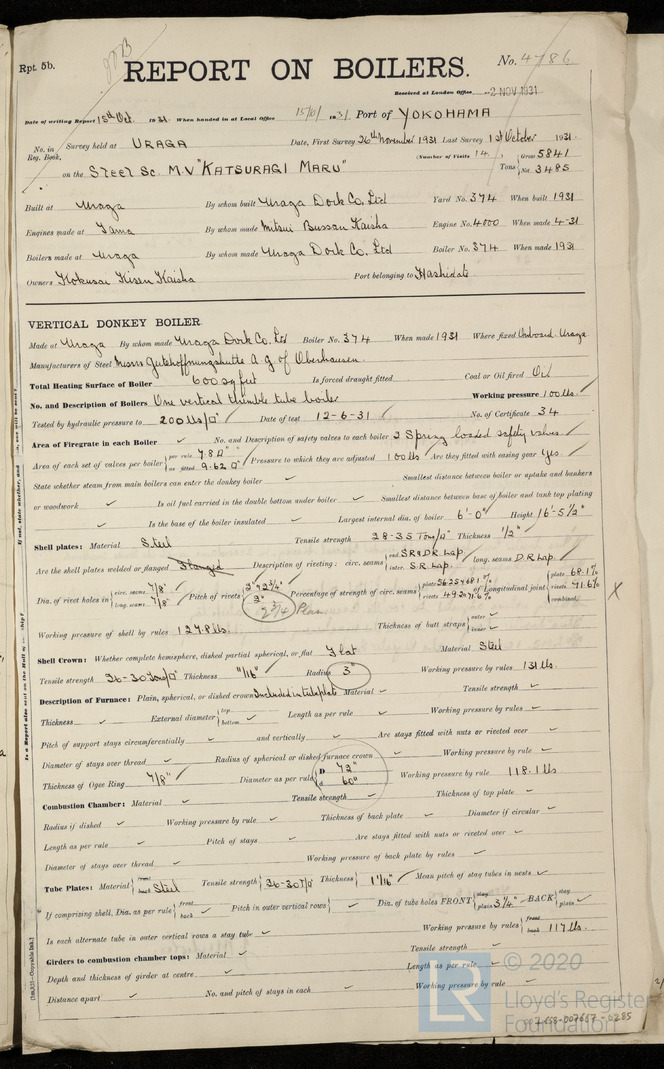 Rpt. 5b.
No. 4786
REPORT ON BOILERS.
Received at London Office -2 NOV 1931
Date of writing Report 15th Oct. 1931. When handed in at Local Office 15/10/1931. Port of YOKOHAMA
No. in Reg. Book. Survey held at URAGA Date, First Survey 26th November 1931 Last Survey 1st October 1931.
(Number of Visits 14.)
on the Steel Sc. M.V "KATSURAGI MARU" Tons Gross 5841 Net 3485
Built at Uraga By whom built Uraga Dock Co. Ltd Yard No. 374 When built 1931
Engines made at Tama By whom made Mitsui Bussan Kaisha Engine No. 4000 When made 4-31
Boilers made at Uraga By whom made Uraga Dock Co. Ltd Boiler No. 374 When made 1931
Owners Kokusai Kisen Kaisha Port belonging to Hashidate
VERTICAL DONKEY BOILER.
Made at Uraga By whom made Uraga Dock Co. Ltd Boiler No. 374 When made 1931 Where fixed Onboard. Uraga
Manufacturers of Steel Messrs Gutehoffnungshutte A.G. of Oberhausen.
Total Heating Surface of Boiler 600 sq feet Is forced draught fitted Coal or Oil fired Oil
No. and Description of Boilers One vertical thimble tube boiler Working pressure 100 lbs.
Tested by hydraulic pressure to 200 lbs/□" Date of test 12-6-31 No. of Certificate 34
Area of Firegrate in each Boiler ✓ No. and Description of safety valves to each boiler 2 Spring loaded safety valves.
Area of each set of valves per boiler per rule 7.8 □" as fitted 9.62 □" Pressure to which they are adjusted 100 lbs Are they fitted with easing gear yes.
State whether steam from main boilers can enter the donkey boiler ✓ Smallest distance between boiler or uptake and bunkers
or woodwork ✓ Is oil fuel carried in the double bottom under boiler ✓ Smallest distance between base of boiler and tank top plating
✓ Is the base of the boiler insulated ✓ Largest internal dia. of boiler 6'-0" Height 16'-5½"
Shell plates: Material Steel Tensile strength 28-35 Tons/□" Thickness ½"
Are the shell plates welded or flanged Flanged Description of riveting: circ. seams end SR&DR Lap. inter. S.R. Lap. long. seams D.R Lap.
Dia. of rivet holes in circ. seams 7/8" long. seams 7/8" Pitch of rivets 2¾" Plan Percentage of strength of circ. seams plate rivets of Longitudinal joint plate 68.1% rivets 71.6% combined
Working pressure of shell by rules 127.8 lbs. Thickness of butt straps outer ✓ inner ✓
Shell Crown: Whether complete hemisphere, dished partial spherical, or flat Flat Material Steel
Tensile strength 26-30 Tons/□" Thickness 11/16" Radius 3" Working pressure by rules 131 lbs.
Description of Furnace: Plain, spherical, or dished crown Included in tube plate Material ✓ Tensile strength ✓
Thickness ✓ External diameter top bottom ✓ Length as per rule ✓ Working pressure by rules ✓
Pitch of support stays circumferentially ✓ and vertically ✓ Are stays fitted with nuts or riveted over ✓
Diameter of stays over thread ✓ Radius of spherical or dished furnace crown ✓ Working pressure by rule ✓
Thickness of Ogee Ring 7/8" Diameter as per rule D 72" d 60" Working pressure by rule 118.1 lbs
Combustion Chamber: Material ✓ Tensile strength ✓ Thickness of top plate ✓
Radius if dished ✓ Working pressure by rule ✓ Thickness of back plate ✓ Diameter if circular ✓
Length as per rule ✓ Pitch of stays ✓ Are stays fitted with nuts or riveted over ✓
Diameter of stays over thread ✓ Working pressure of back plate by rules ✓
Tube Plates: Material front back Steel Tensile strength 26-30 T/□" Thickness 1 1/16" Mean pitch of stay tubes in nests ✓
If comprising shell, Dia. as per rule front back ✓ Pitch in outer vertical rows ✓ Dia. of tube holes FRONT stay plain 3¼" BACK stay plain ✓
Is each alternate tube in outer vertical rows a stay tube ✓ Working pressure by rules front back 117 lbs.
Girders to combustion chamber tops: Material ✓ Tensile strength ✓
Depth and thickness of girder at centre ✓ Length as per rule ✓
Distance apart ✓ No. and pitch of stays in each ✓ Working pressure by rule ✓
© 2020
Lloyd's Register
Foundation